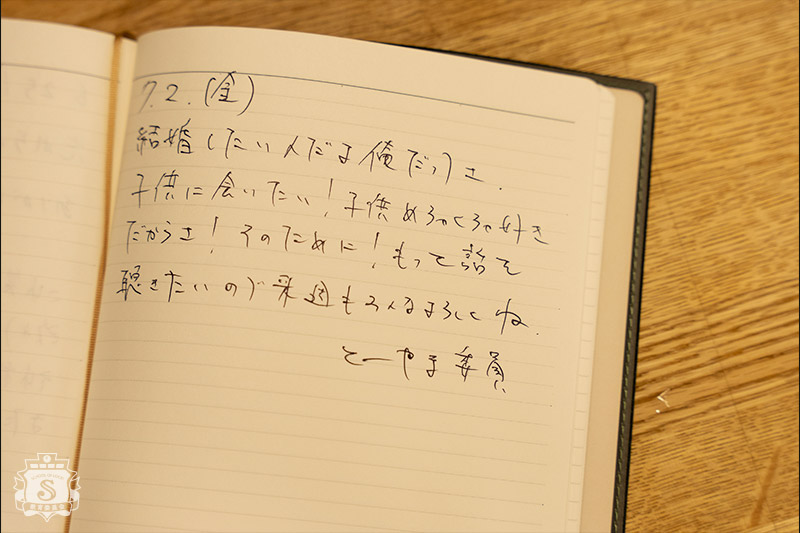 7.2.(金)
結婚したい人だよ俺だってさ.
子供に会いたい!子供めちゃくちゃ好き
だからさ!そのために!もって話を
聴きたいので来週もみんなよろしくね.
とーやま委員
S